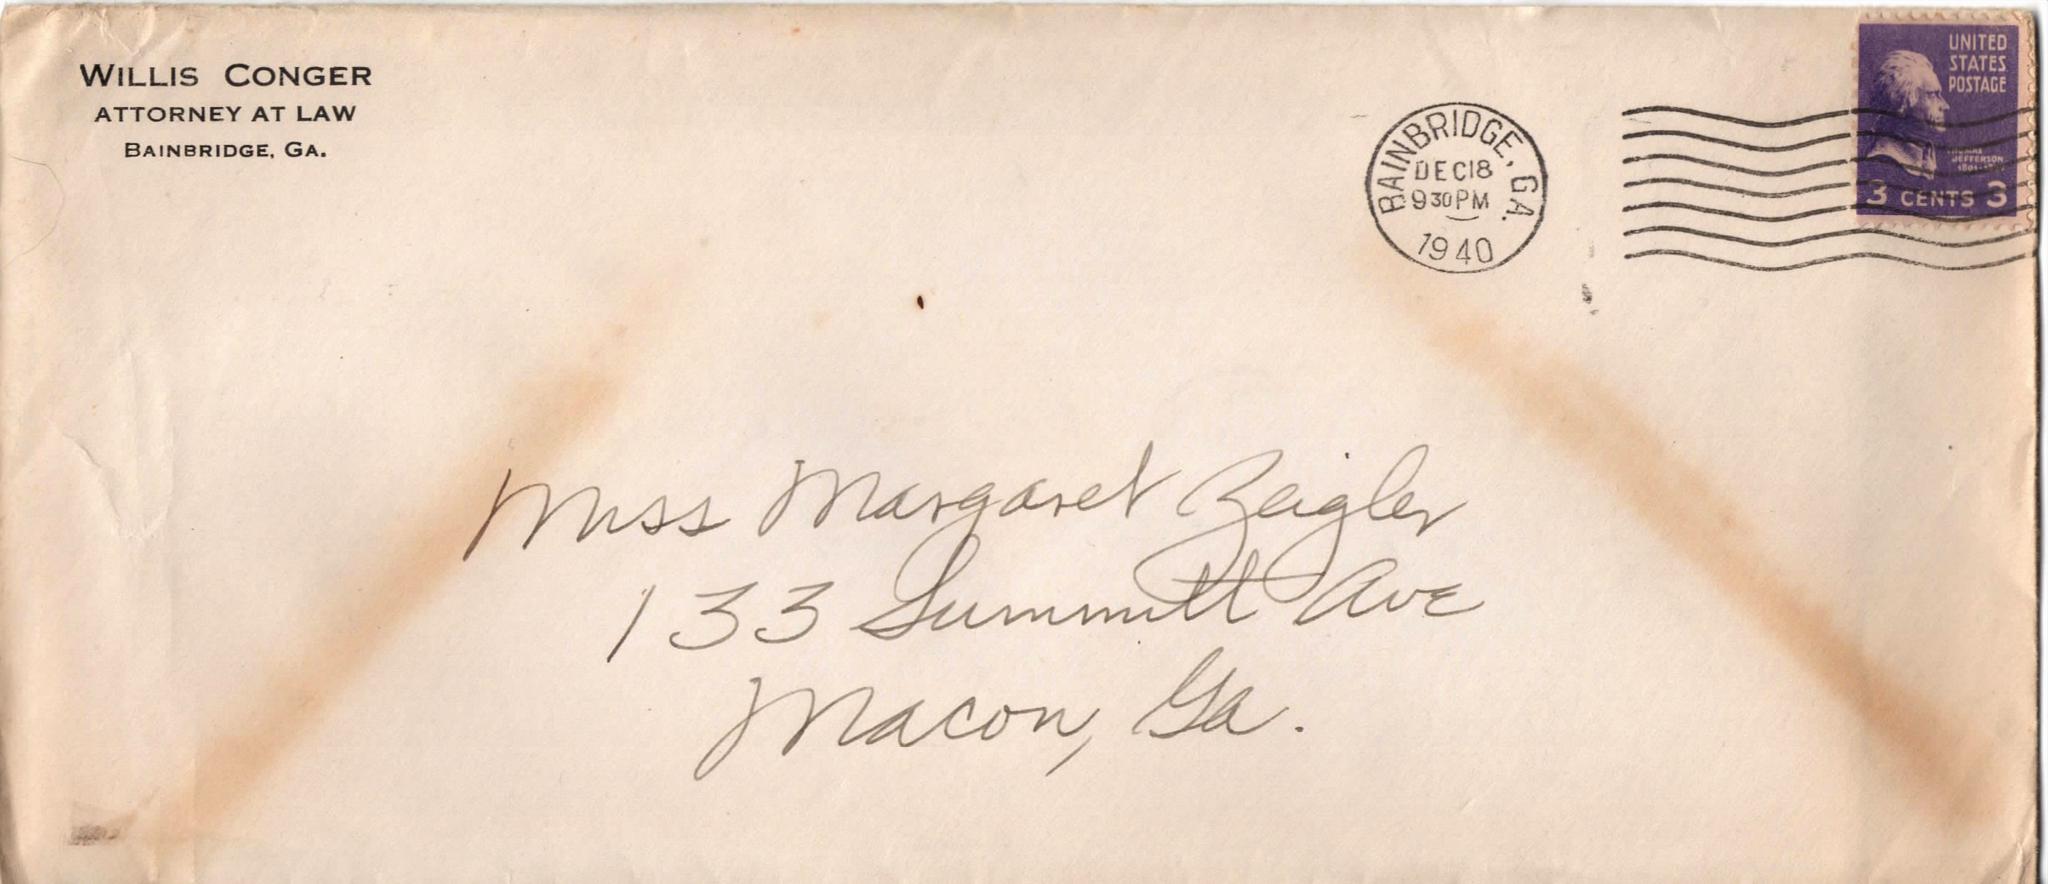 WILLIS CONGER
ATTORNEY AT LAW
BAINBRIDGE, GA.
BAINBRIDGE, GA.
DEC 18
9 30 PM
1940
UNITED
STATES
POSTAGE
THOMAS
JEFFERSON
3 CENTS 3
Miss Margaret Zeigler
133 Summitt Ave
Macon, Ga.